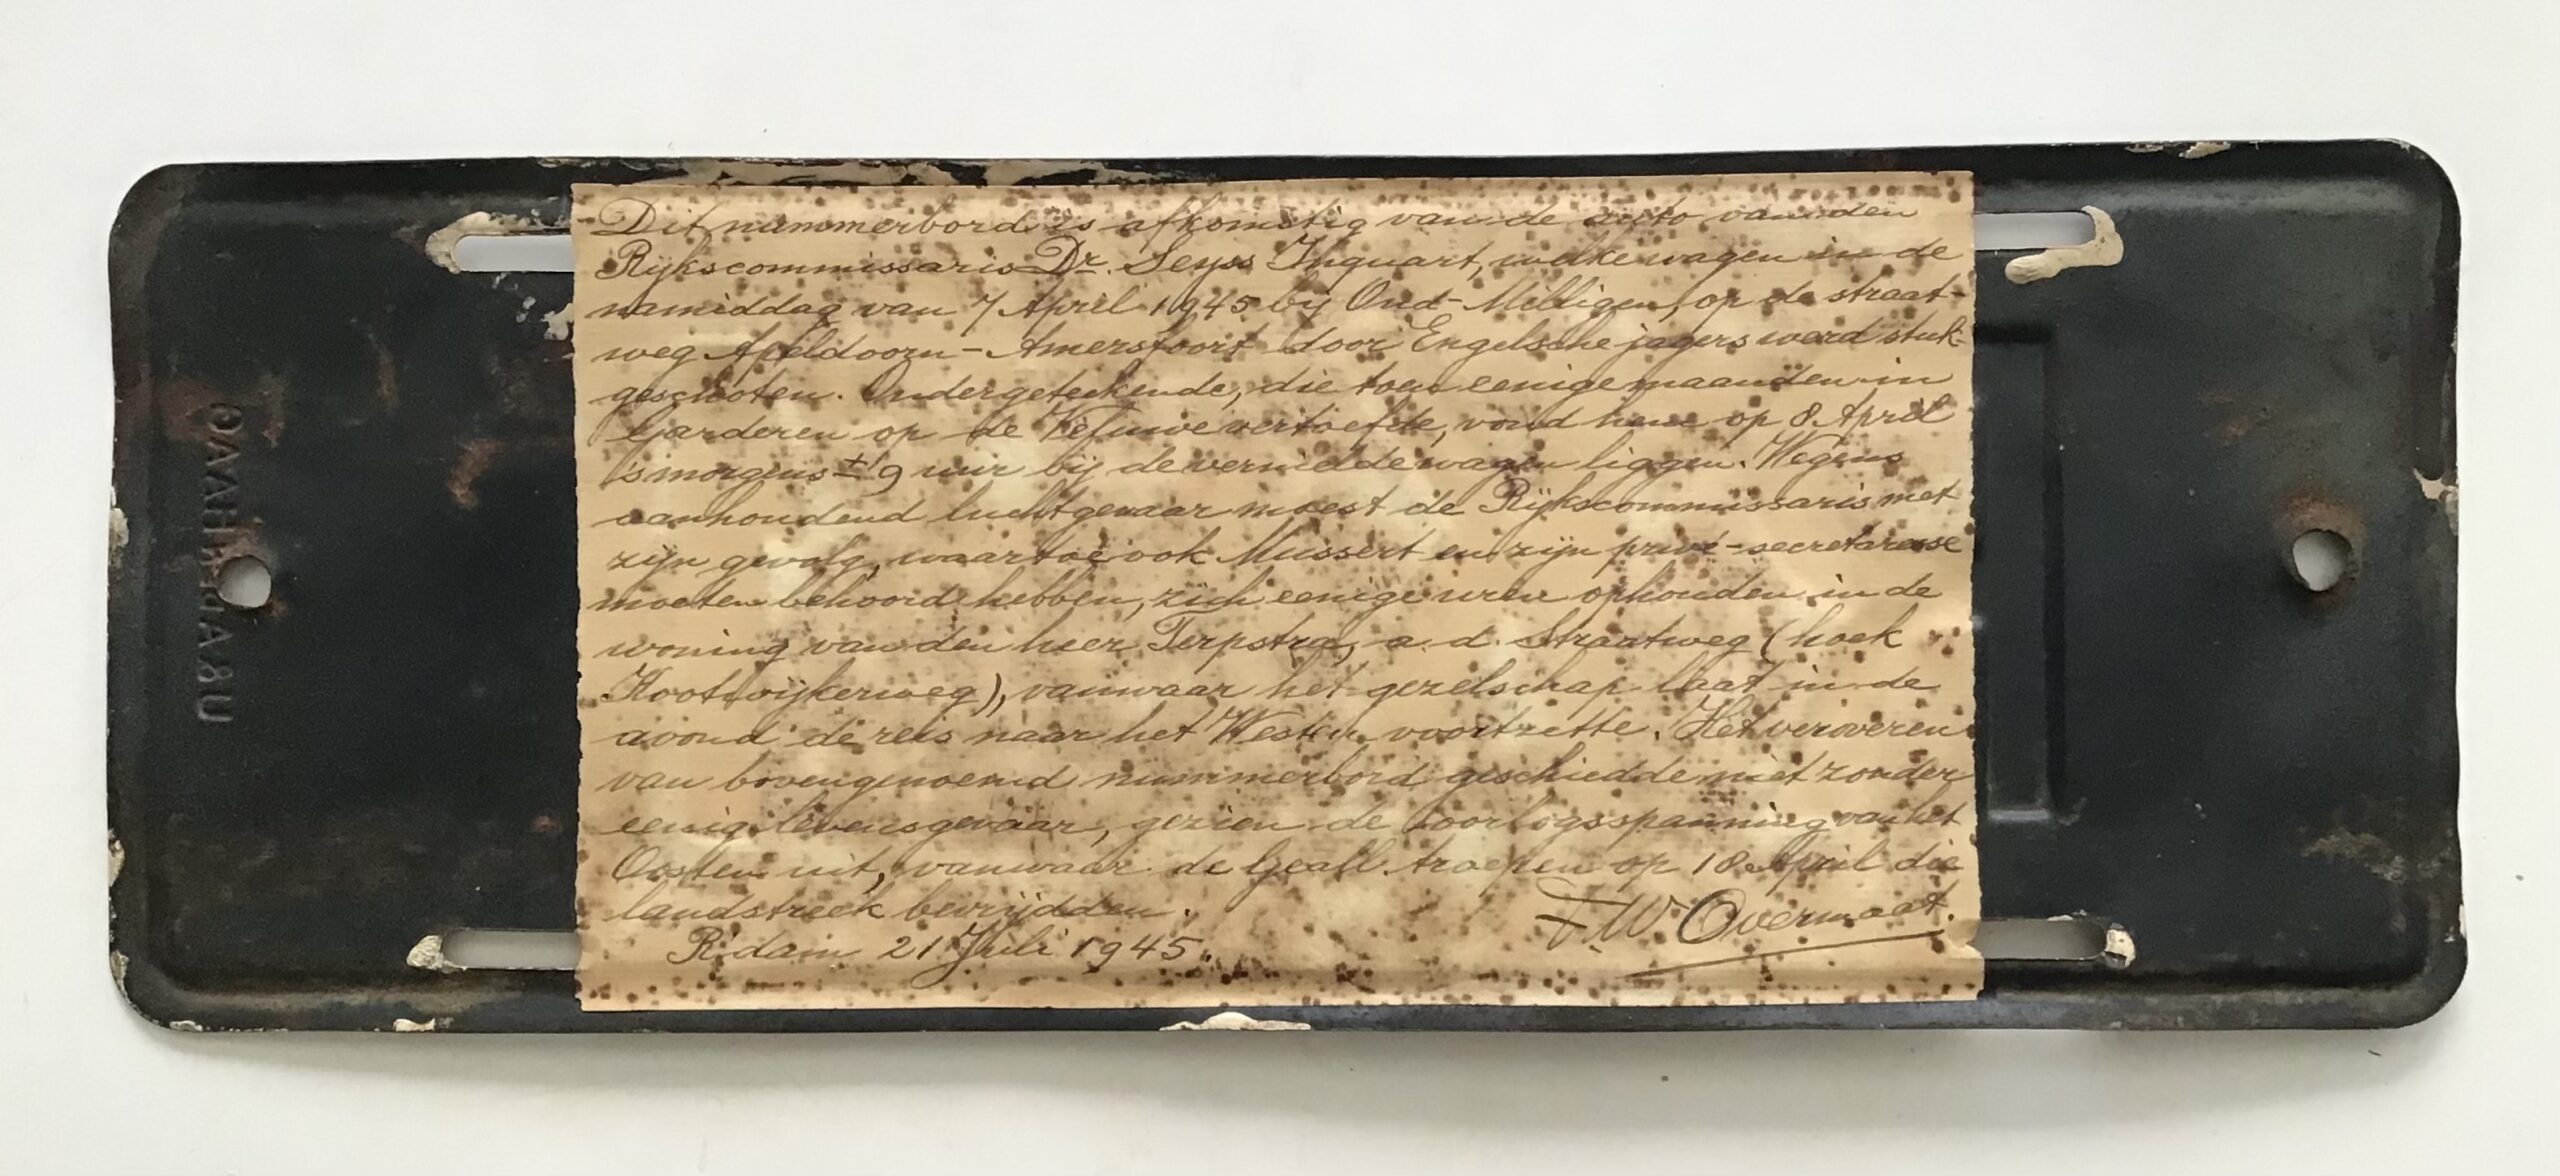 Dit nummerbord is afkomstig van de auto van den
Rijkscommissaris Dr. Seyss Inquart, welke wagen in de
namiddag van 7 April 1945 bij Oud-Milligen, op de straat-
weg Apeldoorn-Amersfoort door Engelsche jagers werd stuk-
geschoten. Ondergeteekende, die toen eenige maanden in
Garderen op de Veluwe vertoefde, vond hem op 8 April
's morgens ± 9 uur bij de vernielde wagen liggen. Wegens
aanhoudend luchtgevaar moest de Rijkscommissaris met
zijn gevolg, waartoe ook Mussert en zijn privé-secretaresse
moeten behoord hebben, zich eenige uren ophouden in de
woning van den heer Terpstra, a. d. Straatweg (hoek
Kootwijkerweg), vanwaar het gezelschap laat in de
avond de reis naar het Westen voortzette. Het veroveren
van bovengenoemd nummerbord geschiedde niet zonder
eenig levensgevaar, gezien de oorlogsspanning van het
Oosten uit, vanwaar de Geall. troepen op 18 April die
landstreek bevrijdden.
R'dam 21 Juli 1945.
F. W. Overmaat.